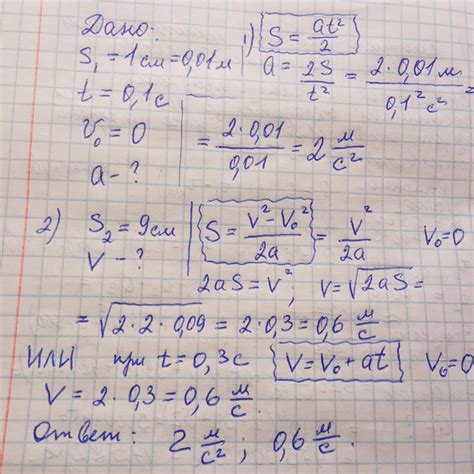 Дано:
S₁ = 1см = 0,01м
t = 0,1с
v₀ = 0
a - ?
1) S = at²/2
a = 2S/t² = 2·0,01м/0,1²с² =
= 2·0,01/0,01 = 2 м/с²
2) S₂ = 9см
V - ?
S = V² - V₀²/2a = V²/2a V₀=0
2aS = V²; V = √2aS =
= √2·2·0,09 = 2·0,3 = 0,6 м/с
ИЛИ при t = 0,3с V = V₀ + at V₀=0
V = 2·0,3 = 0,6 м/с.
Ответ: 2 м/с²; 0,6 м/с.